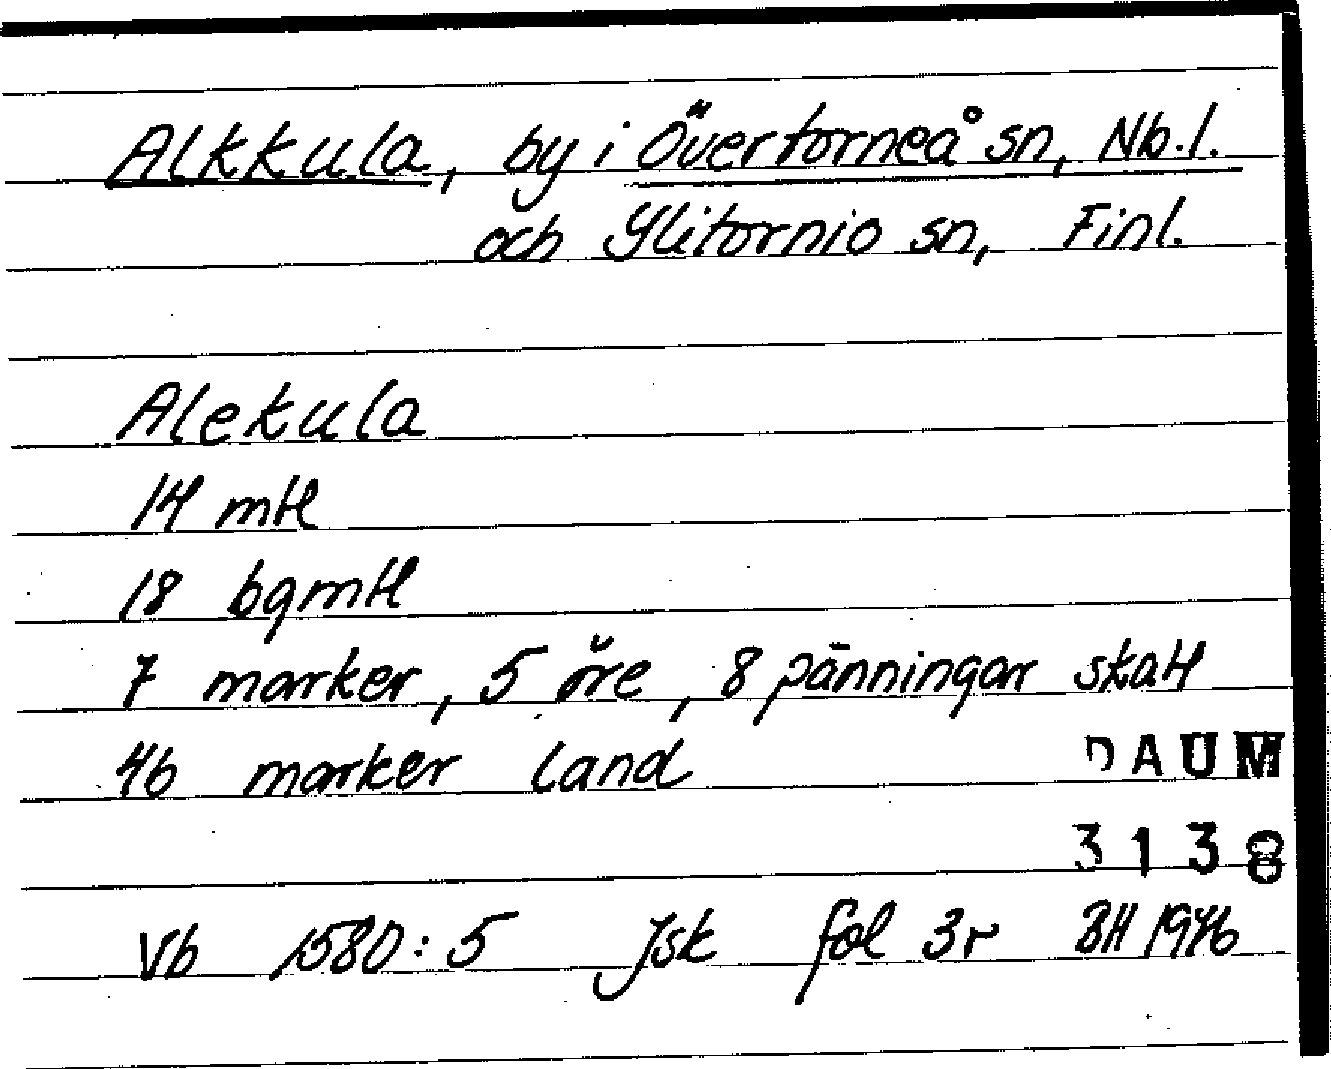 Alkkula, by i Övertorneå sn, Nb.l.
och Ylitornio sn, Finl.
Alekula
14 mtl
18 bgmtl
7 marker, 5 öre, 8 pänningar skatt
46 marker land
DAUM
3138
Vb 1580:5 Jsk fol 3r BH 1976